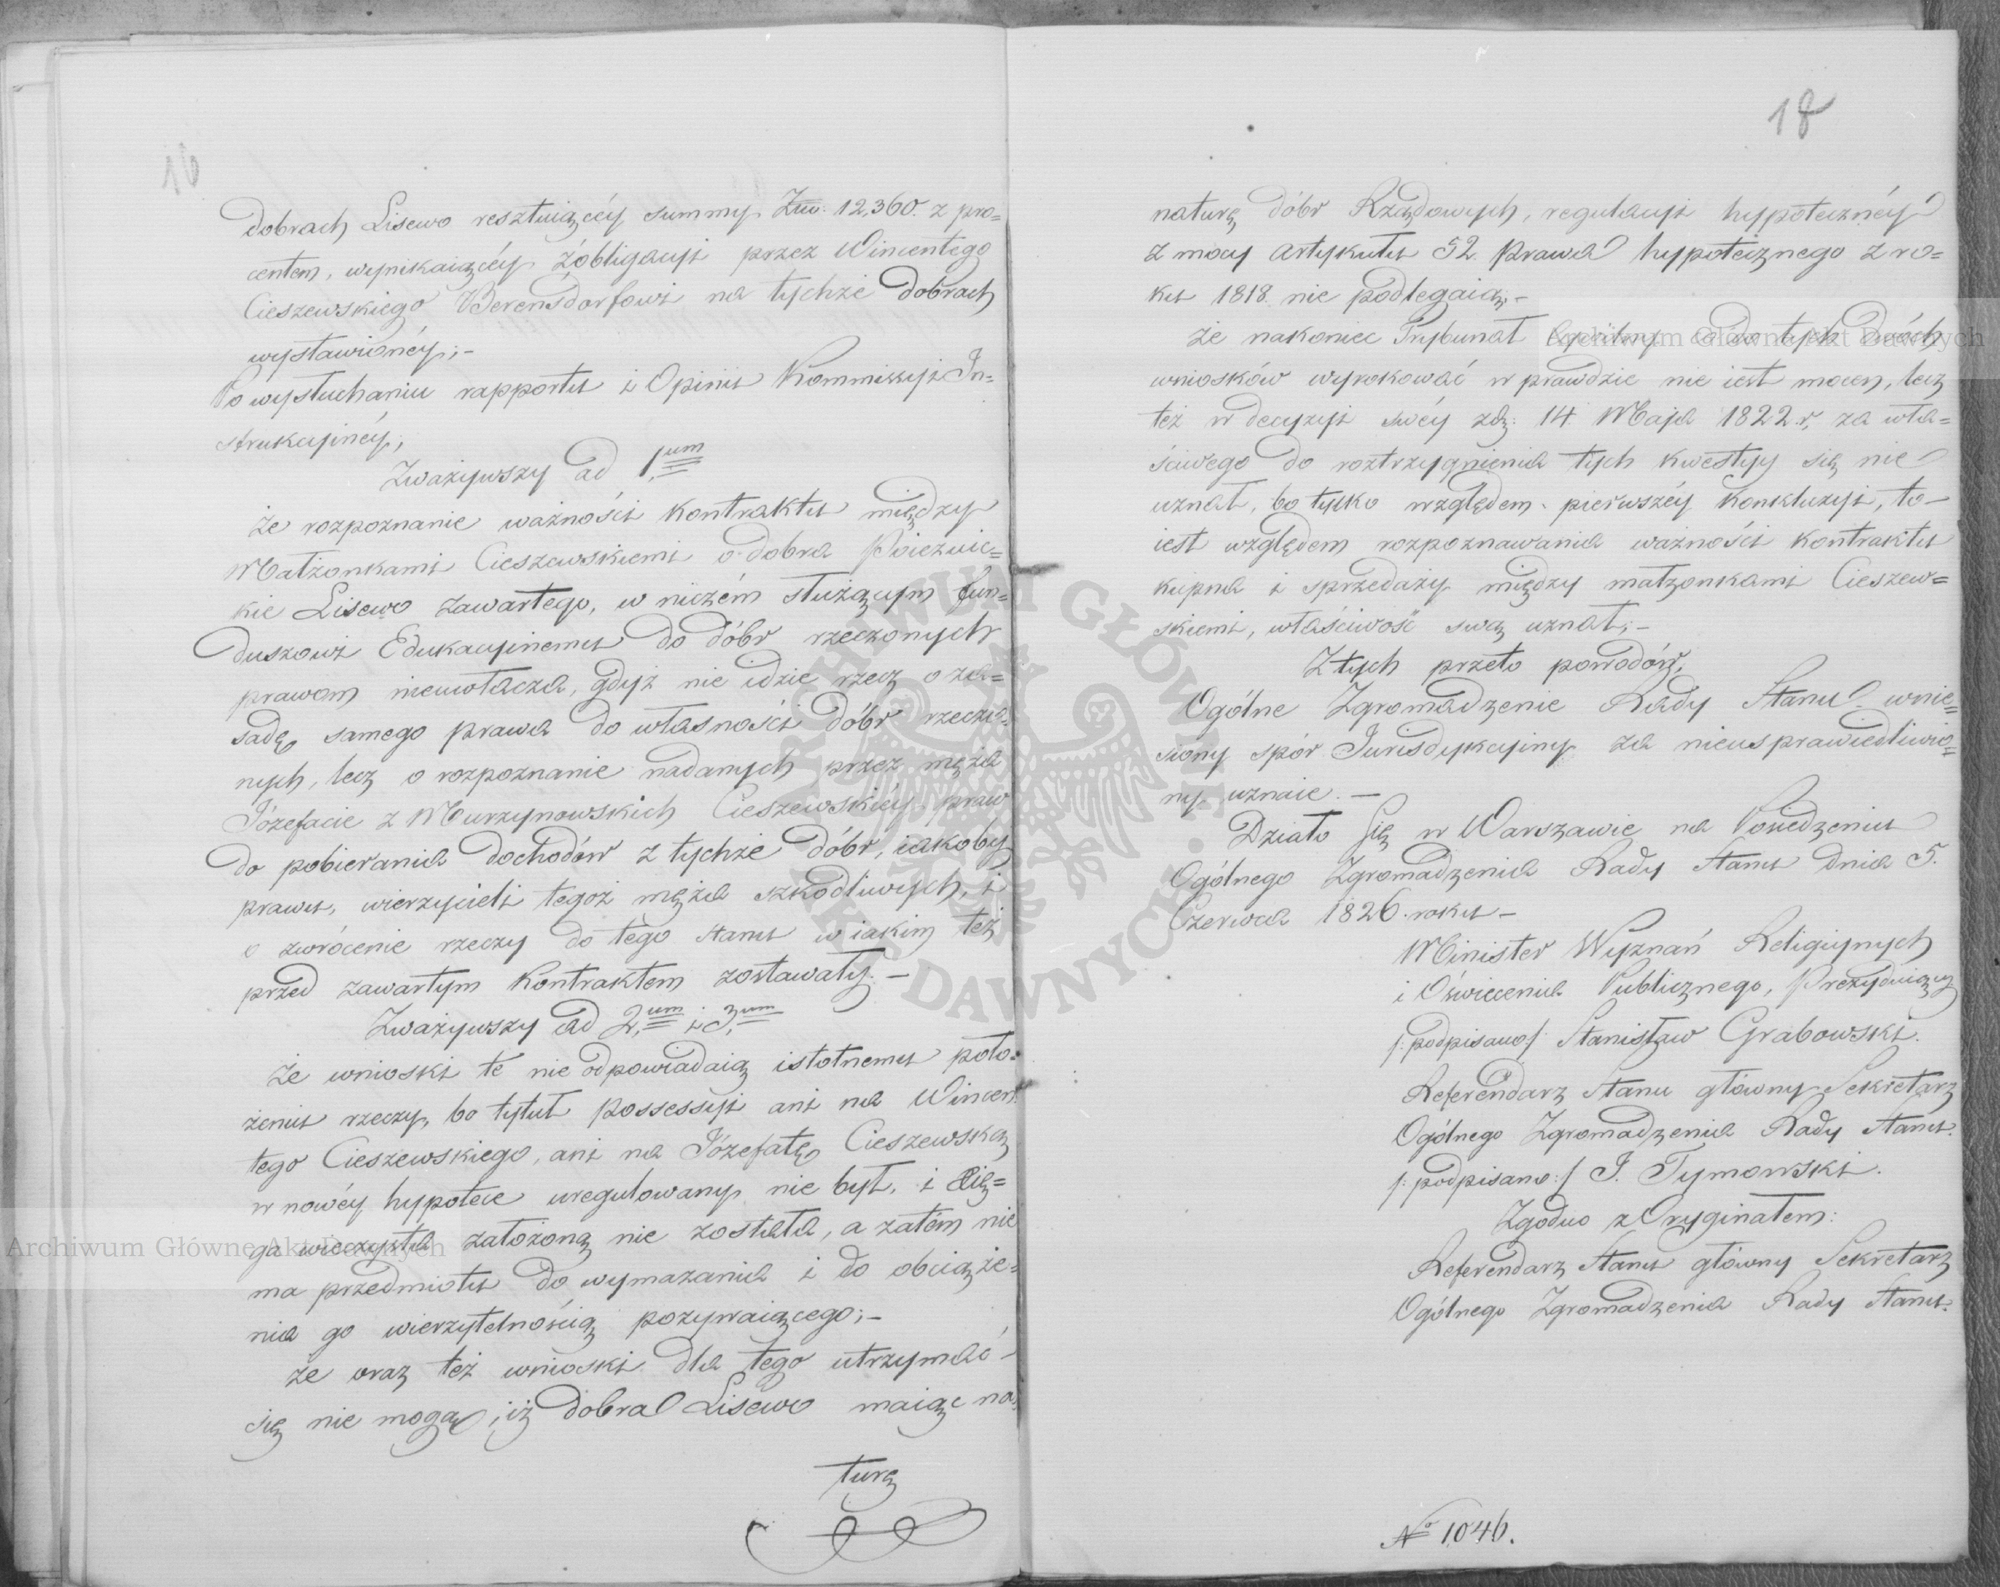 16
dobrach Lisewo resztuiącéy summy Złw. 12,360. z pro=
centem, wynikaiącéy z obligacyi przez Wincentego
Cieszewskiego Berensdorfowi na tychże dobrach
wystawionéy;–
Po wysłuchaniu rapportu i Opinii Kommissyi In=
strukcyinéy,
Zważywszy ad 1,um
że rozpoznanie ważności kontraktu między
Małżonkami Cieszewskiemi o dobra Poiezuic=
kie Lisewo zawartego, w niczém służącym fun=
duszowi Edukacyinemu do dóbr rzeczonych
prawom nieuwłacza, gdyż nie idzie rzecz o za=
sadę samego prawa do własności dóbr rzeczo=
nych, lecz o rozpoznanie nadanych przez męża
Józefacie z Murzynowskich Cieszewskiéy praw
do pobierania dochodów z tychże dóbr, iakoby
prawu, wierzycieli tegoż męża szkodliwych, i
o zwrócenie rzeczy do tego stanu w iakim też
przed zawartym Kontraktem zostawały.–
Zważywszy ad 2,um i 3,um
że wnioski te nie odpowiadaią istotnemu poło=
żeniu rzeczy, bo tytuł possessyi ani na Wincen=
tego Cieszewskiego, ani na Józefatę Cieszewską
w nowéy hypotece uregulowany nie był, i Xię=
ga wieczysta założoną nie została, a zatém nie
ma przedmiotu do wymazania i do obciąże=
nia go wierzytelnością pozywaiącego;–
że oraz też wnioski dla tego utrzymać
się nie mogą, iż dobra Lisewo maiąc na=
turę
18
naturę dóbr Rządowych, regulacyi hypotecznéy
z mocy artykułu 52. prawa hypotecznego z ro=
ku 1818 nie podlegaią;–
że nakoniec Trybunał Cywilny co do tych dwóch
wniosków wyrokować w prawdzie nie iest mocen, lecz
też w decyzyi swéy zdz: 14. Maja 1822.r, za wła=
ściwego do roztrzygnienia tych kwestyy się nie
uznał, bo tylko względem pierwszéy Konkluzyi, to
iest względem rozpoznawania ważności kontraktu
kupna i sprzedaży między małżonkami Cieszew=
skiemi, właściwość swą uznał;–
Z tych przeto powodów,
Ogólne Zgromadzenie Rady Stanu wnie=
siony spór Jurisdykcyiny za nieusprawiedliwio=
ny uznaie.–
Działo się w Warszawie na Posiedzeniu
Ogólnego Zgromadzenia Rady Stanu dnia 5.
Czerwca 1826 roku–
Minister Wyznań Religiynych
i Oświecenia Publicznego, Prezyduiący
/: podpisano/: Stanisław Grabowski.
Referendarz Stanu główny Sekretarz
Ogólnego Zgromadzenia Rady Stanu.
/: podpisano :/ J. Tymowski.
Zgodno z Oryginałem:
Referendarz Stanu główny Sekretarz
Ogólnego Zgromadzenia Rady Stanu.
No 1046.
Archiwum Główne Akt Dawnych
Archiwum Główne Akt Dawnych
ARCHIWUM GŁÓWNE AKT DAWNYCH